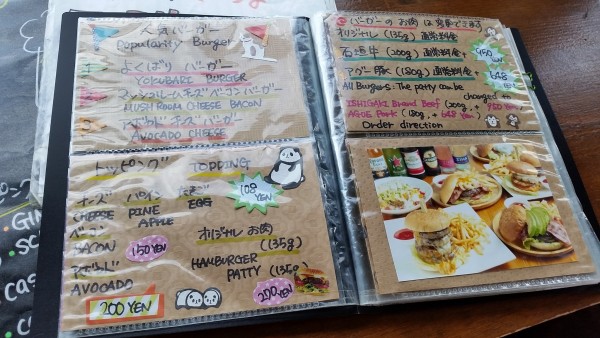 人気バーガー
Popularity Burger
よくばり バーガー
YOKUBARI BURGER
マッシュルームチーズベーコンバーガー
MUSHROOM CHEESE BACON
アボカド チーズ バーガー
AVOCADO CHEESE
トッピング TOPPING
チーズ パイン たまご 108 YEN
CHEESE PINE APPLE EGG
ベーコン
BACON 150 YEN
アボカド
AVOCADO
200 YEN
オリジナル お肉 (135g)
HAMBURGER PATTY (135g)
270 YEN
バーガーの お肉 は 変更できます
オリジナル (135g) 通常料金
石垣牛 (200g) 通常料金 950 YEN
アグー豚 (180g) 通常料金 648 YEN
All Burgers: The patty can be changed to
ISHIGAKI Brand Beef (200g, + 950 Yen)
AGUE Pork (180g, + 648 Yen)
Order direction